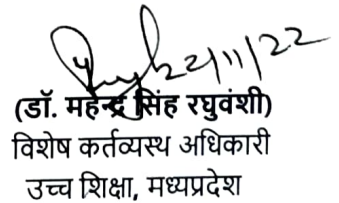 22/11/22
(डॉ. महेन्द्र सिंह रघुवंशी)
विशेष कर्तव्यस्थ अधिकारी
उच्च शिक्षा, मध्यप्रदेश